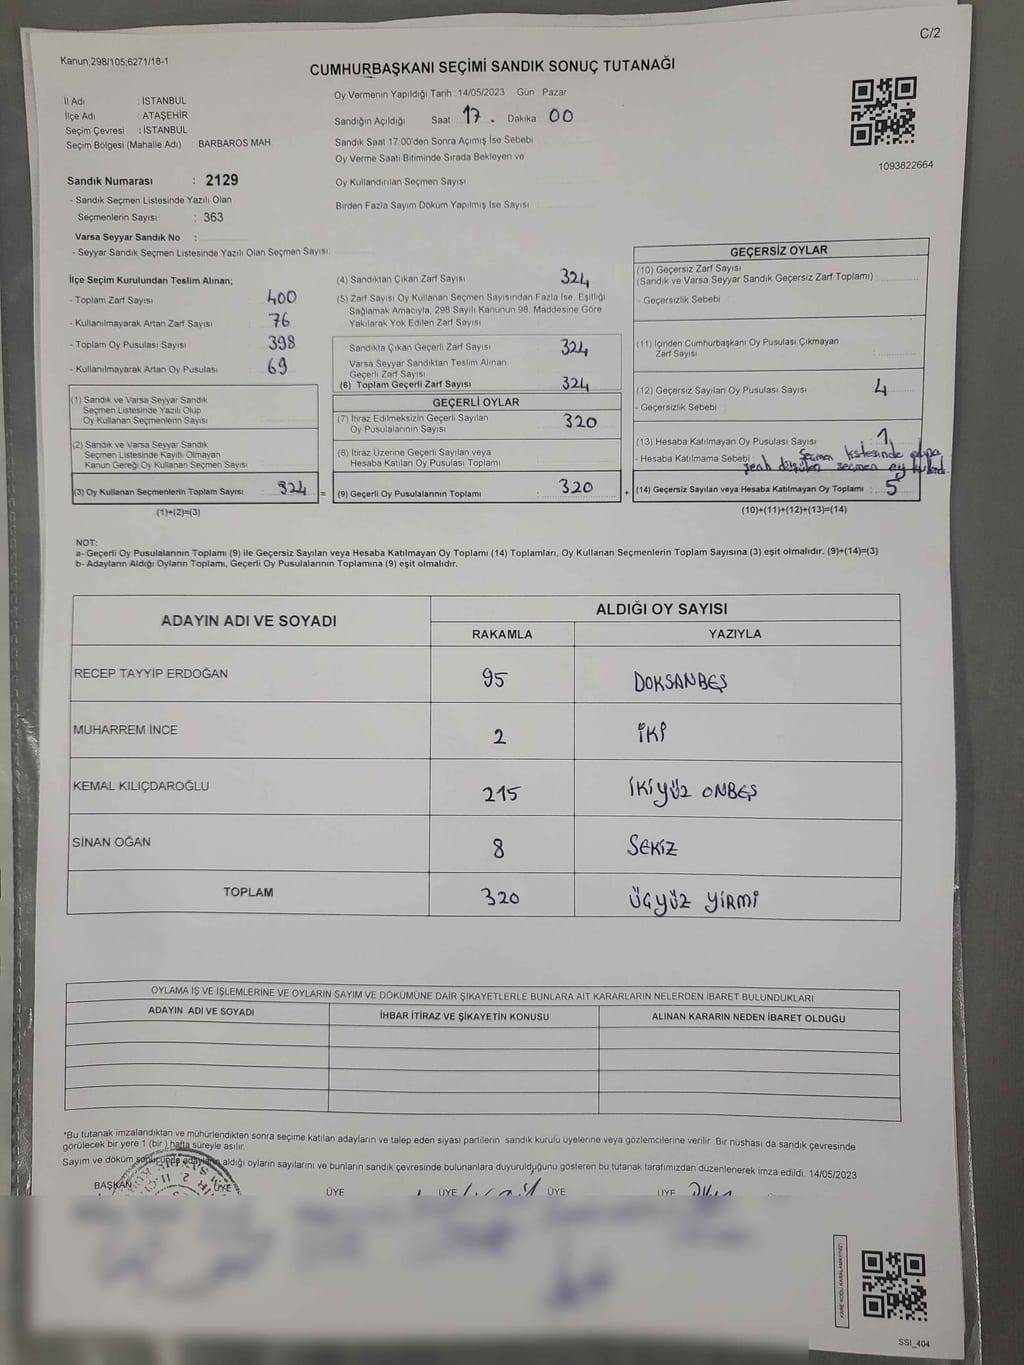 C/2
Kanun,298/105;6271/18-1
CUMHURBAŞKANI SEÇİMİ SANDIK SONUÇ TUTANAĞI
İl Adı : İSTANBUL
İlçe Adı : ATAŞEHİR
Seçim Çevresi : İSTANBUL
Seçim Bölgesi (Mahalle Adı) : BARBAROS MAH.
Oy Vermenin Yapıldığı Tarih : 14/05/2023 Gün Pazar
Sandığın Açıldığı Saat 17. Dakika 00
Sandık Saat 17.00'den Sonra Açımış İse Sebebi
Oy Verme Saati Bitiminde Sırada Bekleyen ve
Oy Kullandırılan Seçmen Sayısı
Birden Fazla Sayım Döküm Yapılmış İse Sayısı
1093822664
Sandık Numarası : 2129
- Sandık Seçmen Listesinde Yazılı Olan
Seçmenlerin Sayısı : 363
Varsa Seyyar Sandık No :
- Seyyar Sandık Seçmen Listesinde Yazılı Olan Seçmen Sayısı:
İlçe Seçim Kurulundan Teslim Alınan;
- Toplam Zarf Sayısı 400
- Kullanılmayarak Artan Zarf Sayısı 76
- Toplam Oy Pusulası Sayısı 398
- Kullanılmayarak Artan Oy Pusulası 69
(1) Sandık ve Varsa Seyyar Sandık
Seçmen Listesinde Yazılı Olup
Oy Kullanan Seçmenlerin Sayısı
(2) Sandık ve Varsa Seyyar Sandık
Seçmen Listesinde Kayıtlı Olmayan
Kanun Gereği Oy Kullanan Seçmen Sayısı
(3) Oy Kullanan Seçmenlerin Toplam Sayısı : 324 =
(1)+(2)=(3)
(4) Sandıktan Çıkan Zarf Sayısı 324
(5) Zarf Sayısı Oy Kullanan Seçmen Sayısından Fazla İse, Eşitliği
Sağlamak Amacıyla, 298 Sayılı Kanunun 98. Maddesine Göre
Yakılarak Yok Edilen Zarf Sayısı
Sandıkta Çıkan Geçerli Zarf Sayısı 324
Varsa Seyyar Sandıktan Teslim Alınan
Geçerli Zarf Sayısı
(6) Toplam Geçerli Zarf Sayısı 324
GEÇERLİ OYLAR
(7) İtiraz Edilmeksizin Geçerli Sayılan
Oy Pusulalarının Sayısı 320
(8) İtiraz Üzerine Geçerli Sayılan veya
Hesaba Katılan Oy Pusulası Toplamı
(9) Geçerli Oy Pusulalarının Toplamı : 320 +
GEÇERSİZ OYLAR
(10) Geçersiz Zarf Sayısı
(Sandık ve Varsa Seyyar Sandık Geçersiz Zarf Toplamı) :
- Geçersizlik Sebebi :
(11) İçinden Cumhurbaşkanı Oy Pusulası Çıkmayan
Zarf Sayısı :
(12) Geçersiz Sayılan Oy Pusulası Sayısı : 4
- Geçersizlik Sebebi :
(13) Hesaba Katılmayan Oy Pusulası Sayısı : 1
- Hesaba Katılmama Sebebi : Seçmen listesinde olupa
şerh düşülen seçmen oy
(14) Geçersiz Sayılan veya Hesaba Katılmayan Oy Toplamı : 5
(10)+(11)+(12)+(13)=(14)
NOT:
a- Geçerli Oy Pusulalarının Toplamı (9) ile Geçersiz Sayılan veya Hesaba Katılmayan Oy Toplamı (14) Toplamları, Oy Kullanan Seçmenlerin Toplam Sayısına (3) eşit olmalıdır. (9)+(14)=(3)
b- Adayların Aldığı Oyların Toplamı, Geçerli Oy Pusulalarının Toplamına (9) eşit olmalıdır.
ADAYIN ADI VE SOYADI ALDIĞI OY SAYISI
RAKAMLA YAZIYLA
RECEP TAYYİP ERDOĞAN 95 DOKSANBEŞ
MUHARREM İNCE 2 İKİ
KEMAL KILIÇDAROĞLU 215 İKİYÜZ ONBEŞ
SİNAN OĞAN 8 SEKİZ
TOPLAM 320 ÜÇYÜZ YİRMİ
OYLAMA İŞ VE İŞLEMLERİNE VE OYLARIN SAYIM VE DÖKÜMÜNE DAİR ŞİKAYETLERLE BUNLARA AİT KARARLARIN NELERDEN İBARET BULUNDUKLARI
ADAYIN ADI VE SOYADI İHBAR İTİRAZ VE ŞİKAYETİN KONUSU ALINAN KARARIN NEDEN İBARET OLDUĞU
*Bu tutanak imzalandıktan ve mühürlendikten sonra seçime katılan adayların ve talep eden siyasi partilerin sandık kurulu üyelerine veya gözlemcilerine verilir. Bir nüshası da sandık çevresinde
görülecek bir yere 1 (bir) hafta süreyle asılır.
Sayım ve döküm sonucunda adayların aldığı oyların sayılarını ve bunların sandık çevresinde bulunanlara duyurulduğunu gösteren bu tutanak tarafımızdan düzenlenerek imza edildi. 14/05/2023
BAŞKAN ÜYE ÜYE ÜYE ÜYE ÜYE
SSI_404